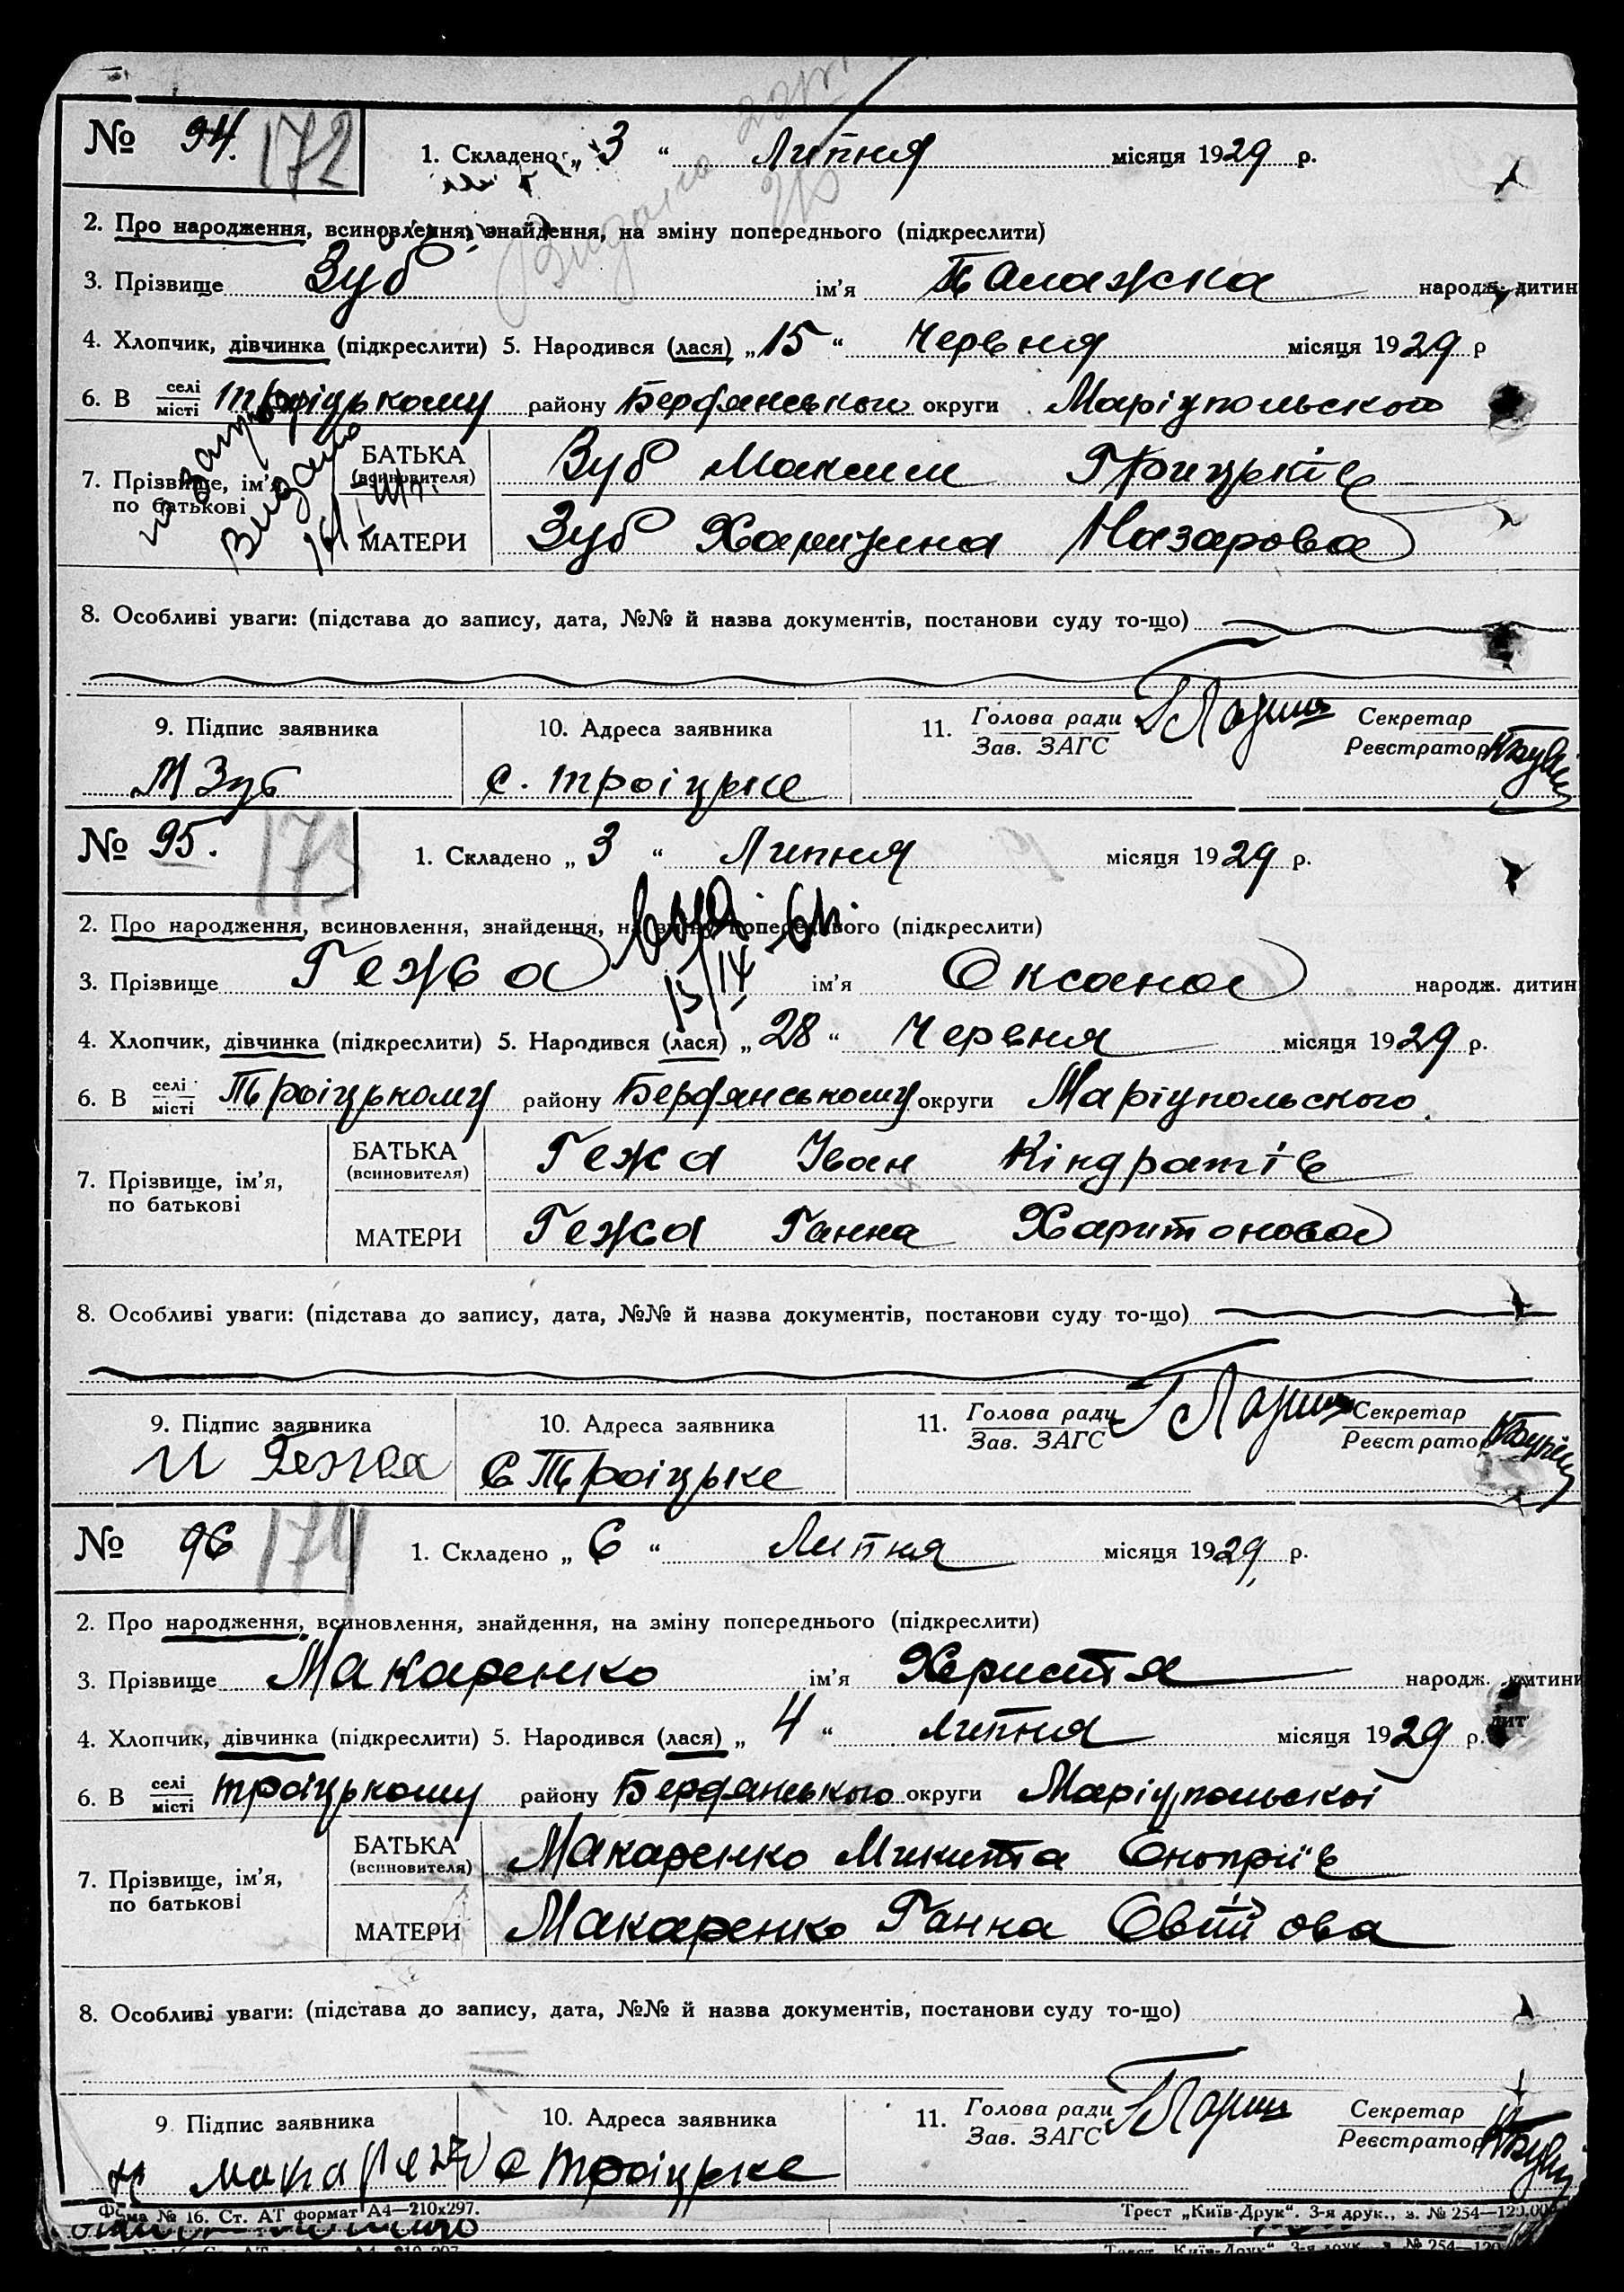 № 94. 172
1. Складено „ 3 “ Липня місяця 1929 р.
2. Про народження, всиновлення, знайдення, на зміну попереднього (підкреслити)
3. Прізвище Зуб ім’я Палажка народж. дитин
4. Хлопчик, дівчинка (підкреслити) 5. Народився (лася) „ 15 “ Червня місяця 1929 р
6. В селі/місті Троїцькому району Бердянського округи Маріупольского
7. Прізвище, ім’я, по батькові
БАТЬКА (всиновителя) Зуб Максим Грицьків
МАТЕРИ Зуб Харитина Назарова
Видано
8. Особливі уваги: (підстава до запису, дата, №№ й назва документів, постанови суду то-що)
9. Підпис заявника 10. Адреса заявника 11. Голова ради Секретар
Зав. ЗАГС Реєстратор
М Зуб с. Троіцьке
№ 95. 173
1. Складено „ 3 “ Липня місяця 1929 р.
2. Про народження, всиновлення, знайдення, на зміну попереднього (підкреслити)
3. Прізвище Гежа ім’я Оксана народж. дитин
4. Хлопчик, дівчинка (підкреслити) 5. Народився (лася) „ 28 “ Червня місяця 1929 р.
6. В селі/місті Троіцькому району Бердянському округи Маріупольского.
7. Прізвище, ім’я, по батькові
БАТЬКА (всиновителя) Гежа Іван Кіндратів
МАТЕРИ Гежа Ганна Харитонова
8. Особливі уваги: (підстава до запису, дата, №№ й назва документів, постанови суду то-що)
9. Підпис заявника 10. Адреса заявника 11. Голова ради Секретар
Зав. ЗАГС Реєстратор
И Гежа С Троіцьке
№ 96 174
1. Складено „ 6 “ Липня місяця 1929 р.
2. Про народження, всиновлення, знайдення, на зміну попереднього (підкреслити)
3. Прізвище Макаренко ім’я Христя народж. дитини
4. Хлопчик, дівчинка (підкреслити) 5. Народився (лася) „ 4 “ липня місяця 1929 р.
6. В селі/місті Троїцькому району Бердянського округи Маріупольскоі
7. Прізвище, ім’я, по батькові
БАТЬКА (всиновителя) Макаренко Микита Оноприїв
МАТЕРИ Макаренко Ганна
8. Особливі уваги: (підстава до запису, дата, №№ й назва документів, постанови суду то-що)
9. Підпис заявника 10. Адреса заявника 11. Голова ради Секретар
Зав. ЗАГС Реєстратор
с Троіцьке
Форма № 16. Ст. АТ формат А4—210х297. Трест „Київ-Друк“. 3-я друк., з. № 254—120.00